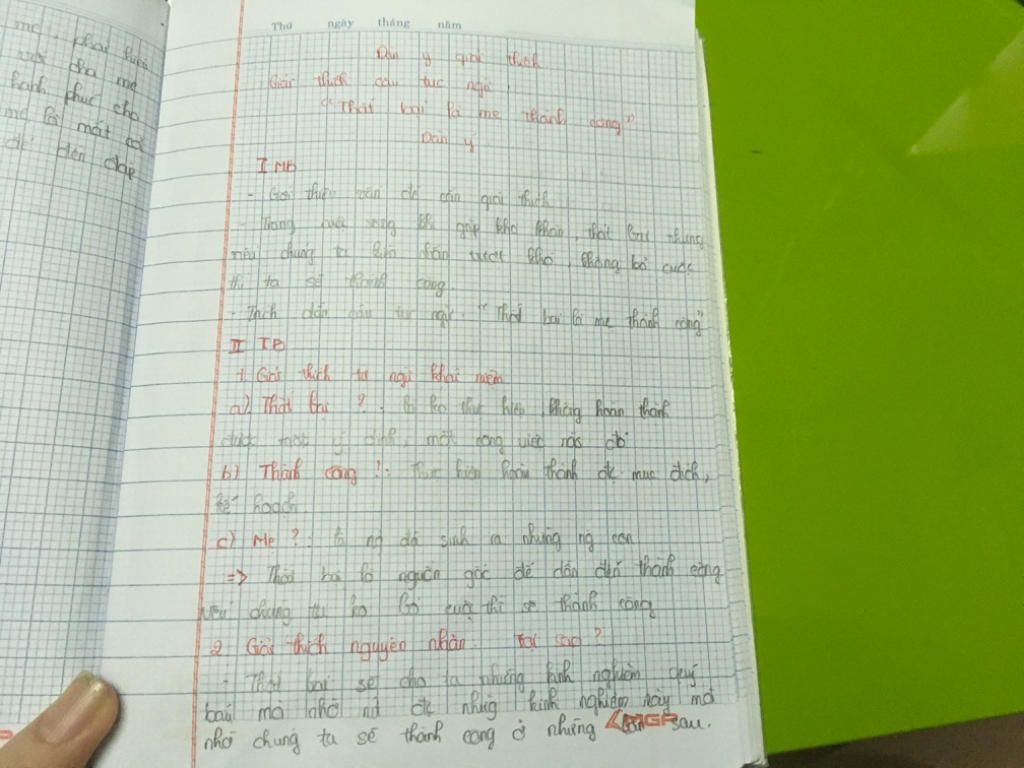 mẹ, phải luôn
với cha mẹ
hạnh phúc cho
mẹ là mất cả
để đền đáp
Thứ ngày tháng năm
Dàn ý giải thích
Giải thích câu tục ngữ
"Thất bại là mẹ thành công"
Dàn ý
I MB
- Giới thiệu vấn đề cần giải thích
- Trong cuộc sống khi gặp khó khăn, thất bại nhưng
nếu chúng ta vượt khó, không bỏ cuộc
thì ta sẽ thành công.
- Trích dẫn câu tục ngữ: "Thất bại là mẹ thành công"
II TB
1. Giải thích từ ngữ khái niệm
a) Thất bại ? là ko thực hiện, không hoàn thành
được một ý định, một công việc nào đó
b) Thành công ! Thực hiện hoàn thành đc mục đích,
kế hoạch
c) Mẹ ? là ng đã sinh ra những ng con
=> Thất bại là nguồn gốc để dẫn đến thành công
Nếu chúng ta ko bỏ cuộc thì sẽ thành công
2. Giải thích nguyên nhân. Tại sao ?
- Thất bại sẽ cho ta những kinh nghiệm quý
báu mà nhờ nó đc những kinh nghiệm này mà
nhờ chúng ta sẽ thành công ở những lần sau.
MGP